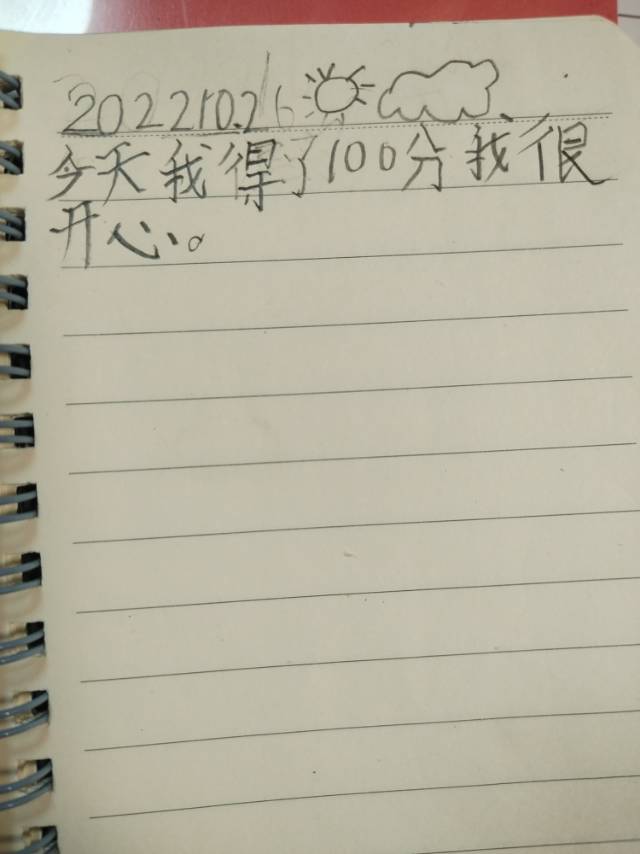 2022 10.26
今天我得了100分我很
开心。